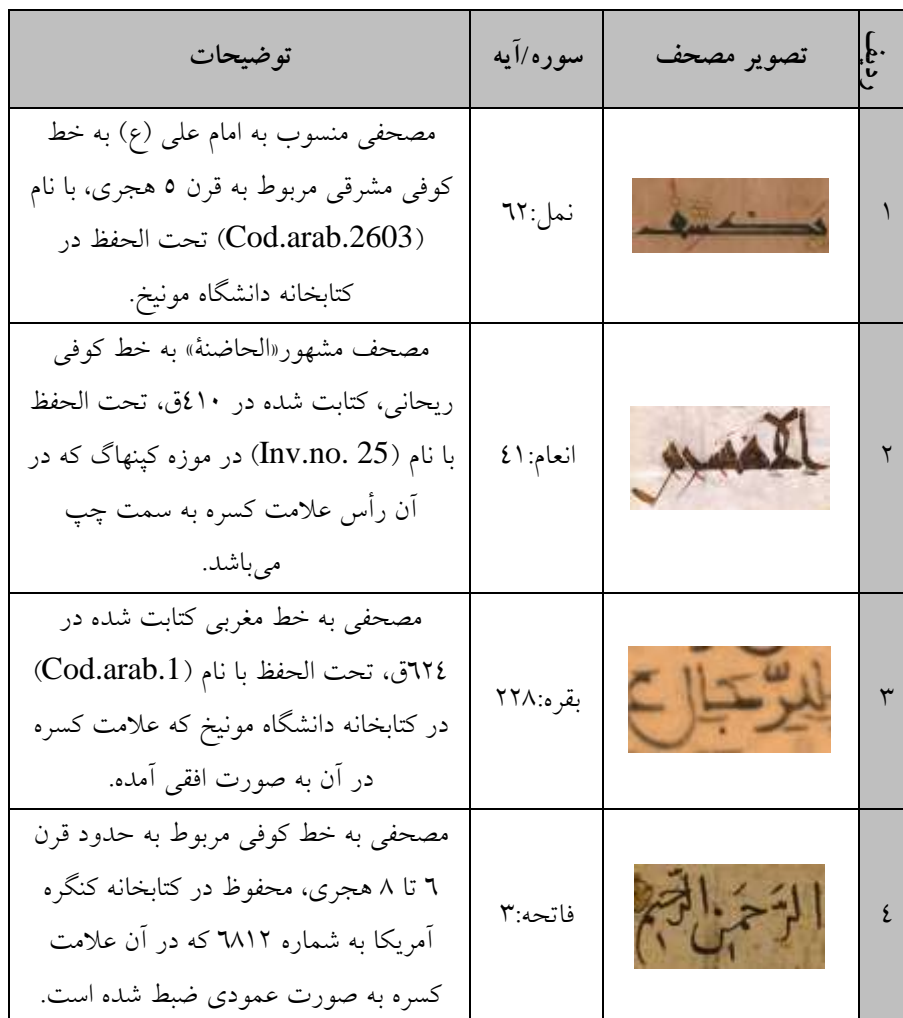 ردیف
تصویر مصحف
سوره/آیه
توضیحات
١
نمل:٦٢
مصحفی منسوب به امام علی (ع) به خط
کوفی مشرقی مربوط به قرن ٥ هجری، با نام
(Cod.arab.2603) تحت الحفظ در
کتابخانه دانشگاه مونیخ.
٢
انعام:٤١
مصحف مشهور«الحاضنۀ» به خط کوفی
ریحانی، کتابت شده در ٤١٠ق، تحت الحفظ
با نام (Inv.no. 25) در موزه کپنهاگ که در
آن رأس علامت کسره به سمت چپ
می‌باشد.
٣
للرّجال
بقره:٢٢٨
مصحفی به خط مغربی کتابت شده در
٦٢٤ق، تحت الحفظ با نام (Cod.arab.1)
در کتابخانه دانشگاه مونیخ که علامت کسره
در آن به صورت افقی آمده.
٤
الرَحمَن الرَحيم
فاتحه:٣
مصحفی به خط کوفی مربوط به حدود قرن
٦ تا ٨ هجری، محفوظ در کتابخانه کنگره
آمریکا به شماره ٦٨١٢ که در آن علامت
کسره به صورت عمودی ضبط شده است.